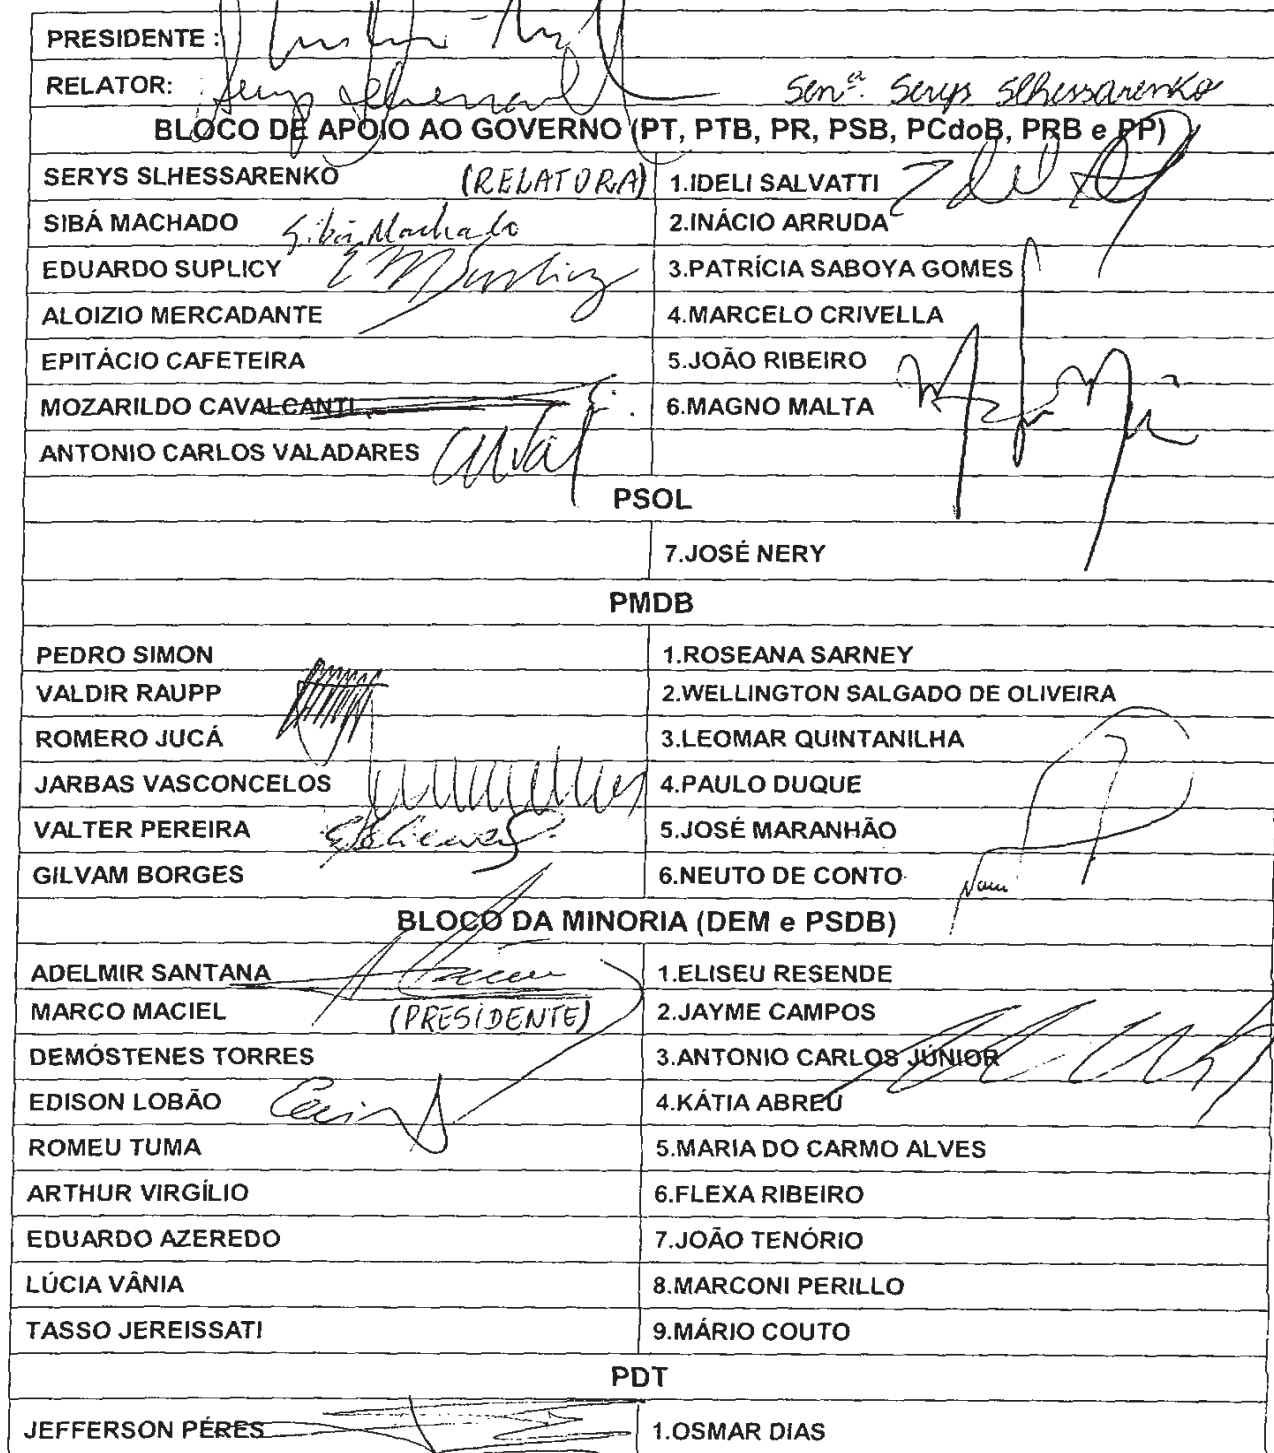 PRESIDENTE :
RELATOR: Senª. Serys Slhessarenko
BLOCO DE APOIO AO GOVERNO (PT, PTB, PR, PSB, PCdoB, PRB e PP)
SERYS SLHESSARENKO (RELATORA) 1.IDELI SALVATTI
SIBÁ MACHADO Sibá Machado 2.INÁCIO ARRUDA
EDUARDO SUPLICY 3.PATRÍCIA SABOYA GOMES
ALOIZIO MERCADANTE 4.MARCELO CRIVELLA
EPITÁCIO CAFETEIRA 5.JOÃO RIBEIRO
MOZARILDO CAVALCANTI 6.MAGNO MALTA
ANTONIO CARLOS VALADARES
PSOL
7.JOSÉ NERY
PMDB
PEDRO SIMON 1.ROSEANA SARNEY
VALDIR RAUPP 2.WELLINGTON SALGADO DE OLIVEIRA
ROMERO JUCÁ 3.LEOMAR QUINTANILHA
JARBAS VASCONCELOS 4.PAULO DUQUE
VALTER PEREIRA 5.JOSÉ MARANHÃO
GILVAM BORGES 6.NEUTO DE CONTO
BLOCO DA MINORIA (DEM e PSDB)
ADELMIR SANTANA 1.ELISEU RESENDE
MARCO MACIEL (PRESIDENTE) 2.JAYME CAMPOS
DEMÓSTENES TORRES 3.ANTONIO CARLOS JÚNIOR
EDISON LOBÃO 4.KÁTIA ABREU
ROMEU TUMA 5.MARIA DO CARMO ALVES
ARTHUR VIRGÍLIO 6.FLEXA RIBEIRO
EDUARDO AZEREDO 7.JOÃO TENÓRIO
LÚCIA VÂNIA 8.MARCONI PERILLO
TASSO JEREISSATI 9.MÁRIO COUTO
PDT
JEFFERSON PÉRES 1.OSMAR DIAS